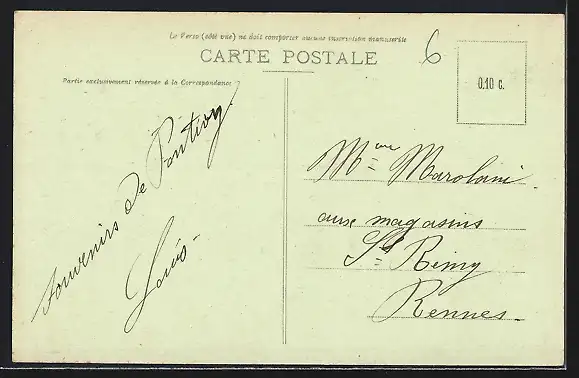 Le Verso (côté vue) ne doit comporter aucune inscription manuscrite
CARTE POSTALE
6
0.10 c.
Partie exclusivement réservée à la Correspondance
Souvenirs de Pontivy.
Louis-
Mme Marolani
aux magasins
St Remy
Rennes-